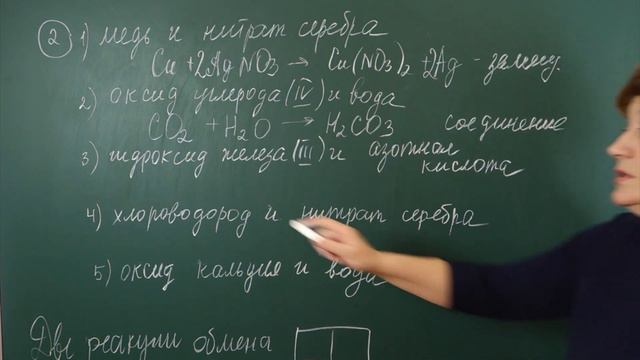 2 1) медь и нитрат серебра
Cu + 2AgNO3 → Cu(NO3)2 + 2Ag - замещ.
2) оксид углерода (IV) и вода
CO2 + H2O → H2CO3 соединение
3) гидроксид железа (III) и азотная
кислота
4) хлороводород и нитрат серебра
5) оксид кальция и вода
Две реакции обмена